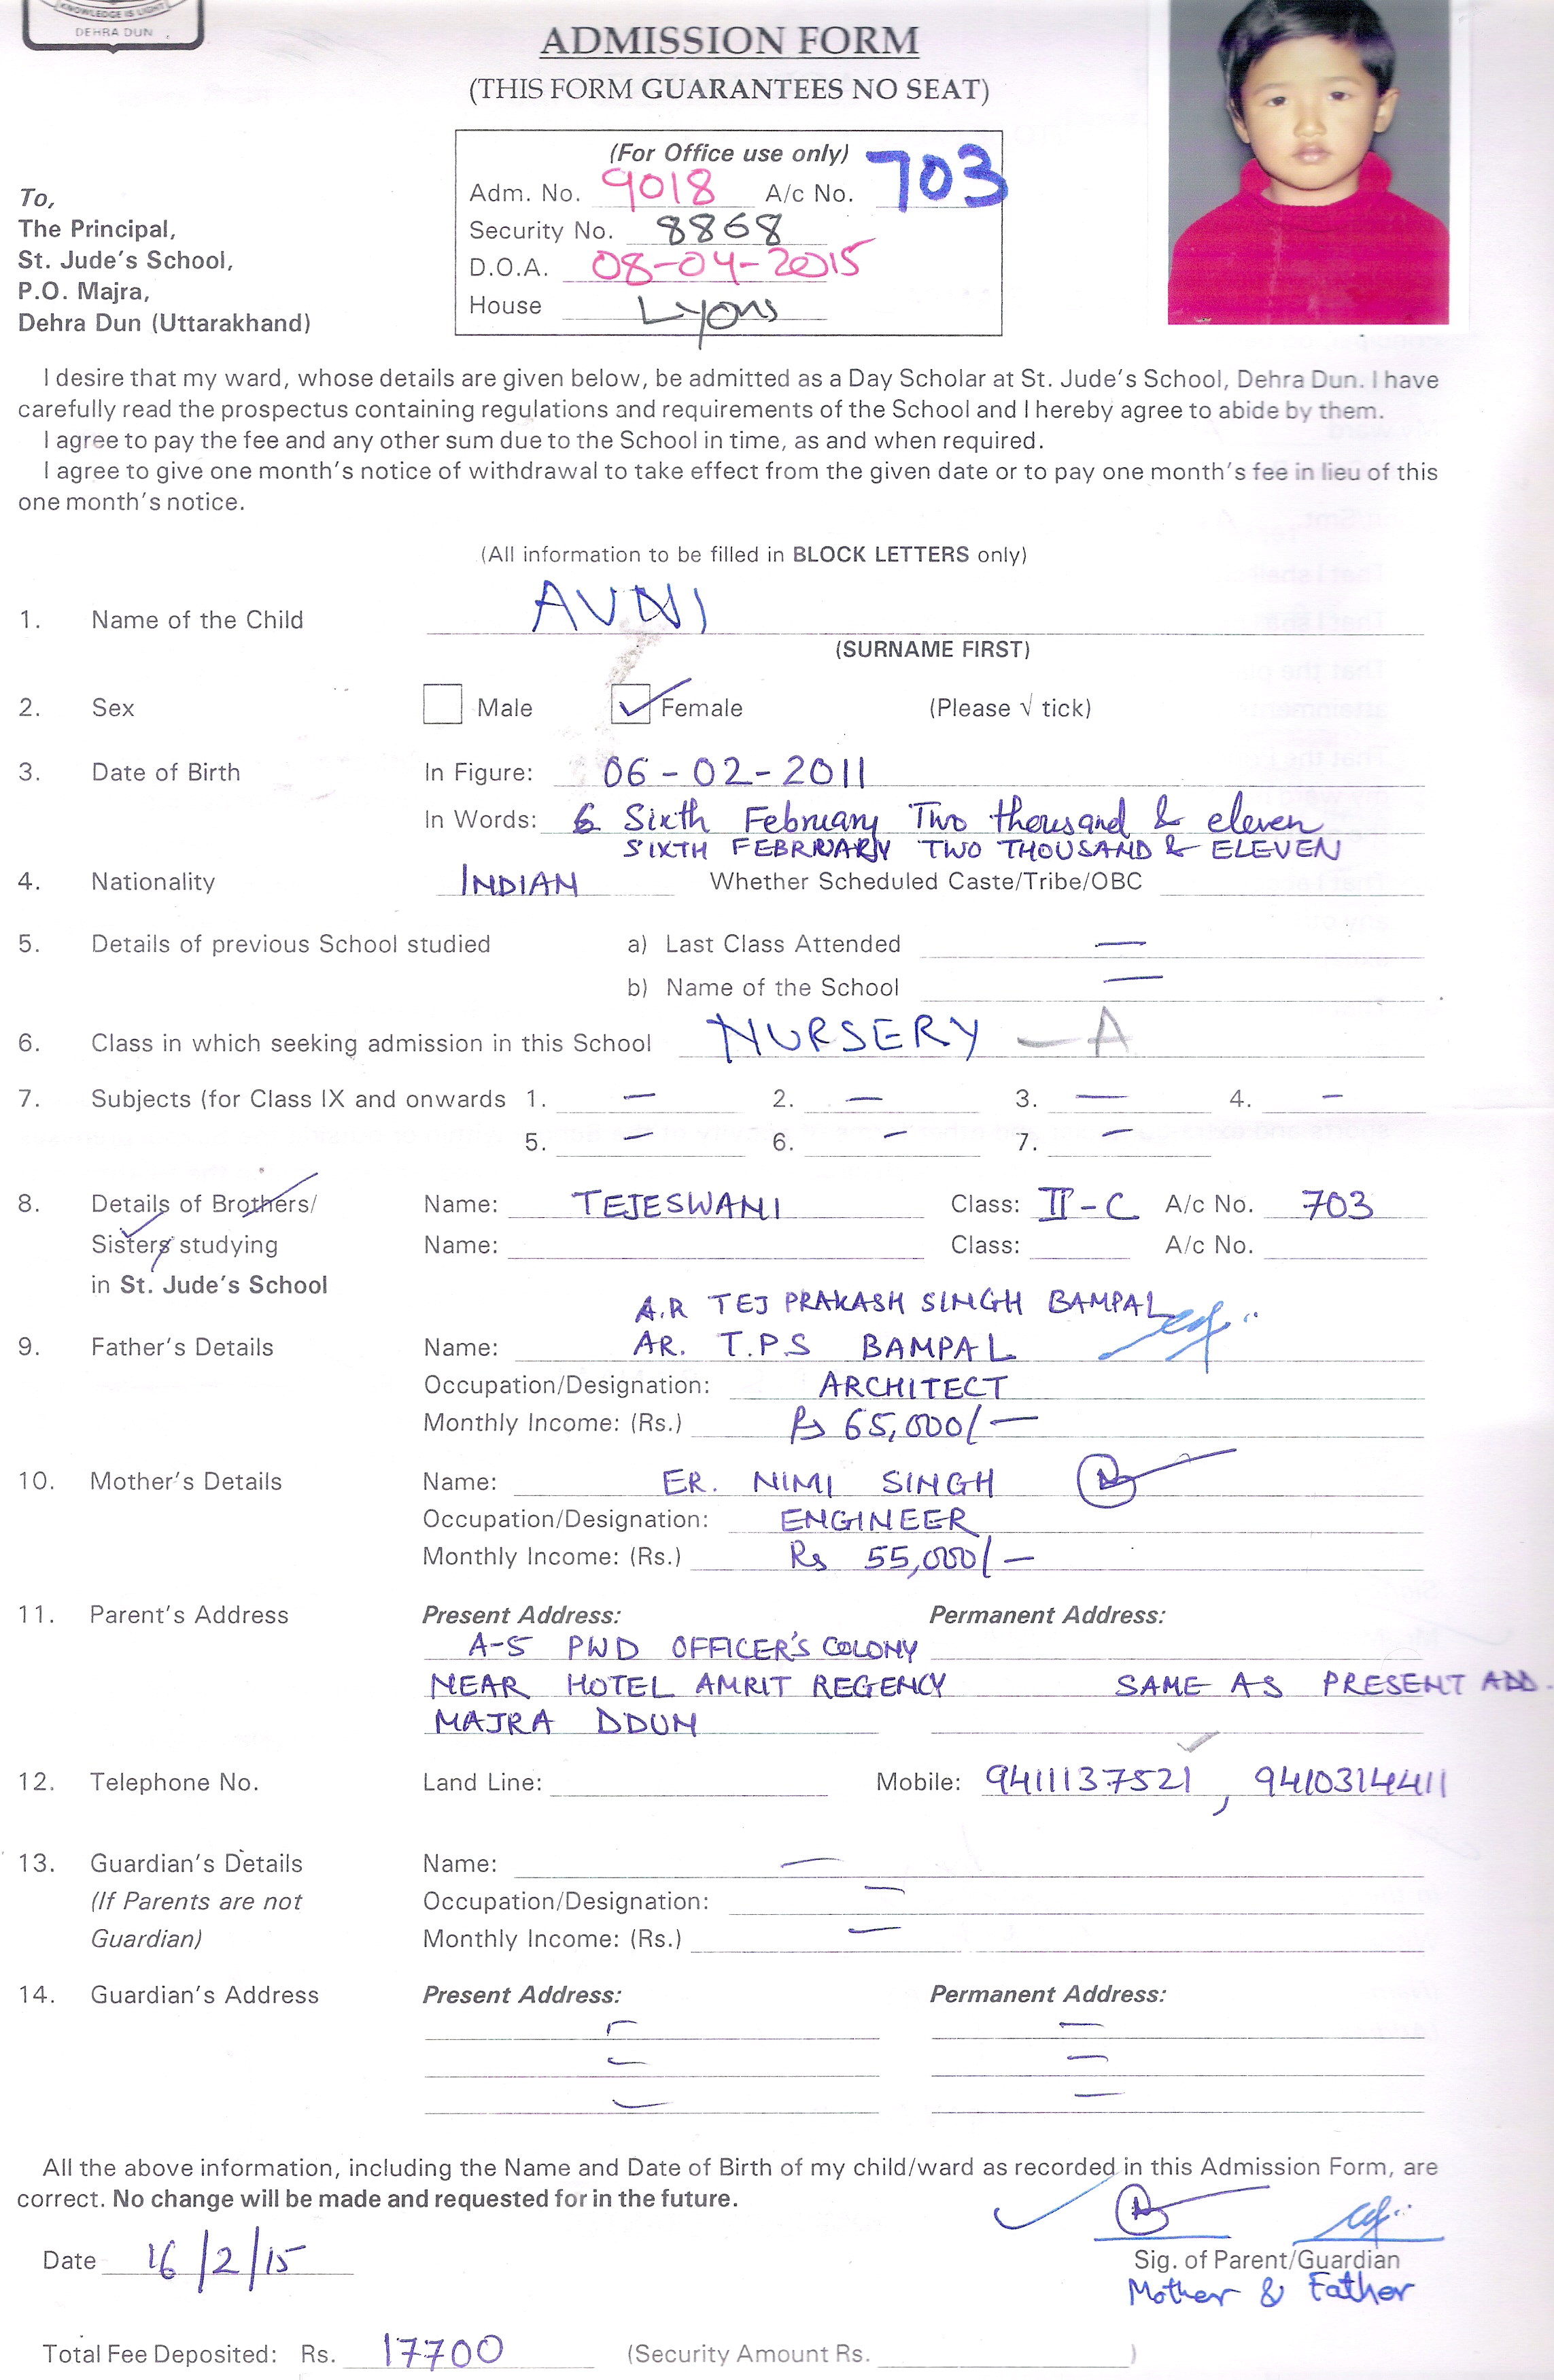 KNOWLEDGE IS LIGHT
DEHRA DUN
ADMISSION FORM
(THIS FORM GUARANTEES NO SEAT)
(For Office use only)
Adm. No. 9018 A/c No. 703
Security No. 8868
D.O.A. 08-04-2015
House Lyons
To,
The Principal,
St. Jude's School,
P.O. Majra,
Dehra Dun (Uttarakhand)
I desire that my ward, whose details are given below, be admitted as a Day Scholar at St. Jude's School, Dehra Dun. I have
carefully read the prospectus containing regulations and requirements of the School and I hereby agree to abide by them.
I agree to pay the fee and any other sum due to the School in time, as and when required.
I agree to give one month's notice of withdrawal to take effect from the given date or to pay one month's fee in lieu of this
one month's notice.
(All information to be filled in BLOCK LETTERS only)
1. Name of the Child AVNI
(SURNAME FIRST)
2. Sex Male ✓ Female (Please √ tick)
3. Date of Birth In Figure: 06-02-2011
In Words: 6 Sixth February Two thousand & eleven
SIXTH FEBRRUARY TWO THOUSAND & ELEVEN
4. Nationality INDIAN Whether Scheduled Caste/Tribe/OBC
5. Details of previous School studied a) Last Class Attended —
b) Name of the School —
6. Class in which seeking admission in this School NURSERY — A
7. Subjects (for Class IX and onwards 1. — 2. — 3. — 4. —
5. — 6. — 7. —
8. Details of Brothers/ Name: TEJESWANI Class: II-C A/c No. 703
Sisters studying Name: Class: A/c No.
in St. Jude's School
A.R TEJ PRAKASH SINGH BAMPAL
9. Father's Details Name: AR. T.P.S BAMPAL
Occupation/Designation: ARCHITECT
Monthly Income: (Rs.) Rs 65,000/—
10. Mother's Details Name: ER. NIMI SINGH
Occupation/Designation: ENGINEER
Monthly Income: (Rs.) Rs 55,000/—
11. Parent's Address Present Address: Permanent Address:
A-5 PWD OFFICER'S COLONY
NEAR HOTEL AMRIT REGENCY SAME AS PRESENT ADD.
MAJRA DDUN
12. Telephone No. Land Line: Mobile: 9411137521, 9410314411
13. Guardian's Details Name: —
(If Parents are not Occupation/Designation: —
Guardian) Monthly Income: (Rs.) —
14. Guardian's Address Present Address: Permanent Address:
— —
— —
— —
All the above information, including the Name and Date of Birth of my child/ward as recorded in this Admission Form, are
correct. No change will be made and requested for in the future.
Date 16/2/15
Sig. of Parent/Guardian
Mother & Father
Total Fee Deposited: Rs. 17700 (Security Amount Rs. )